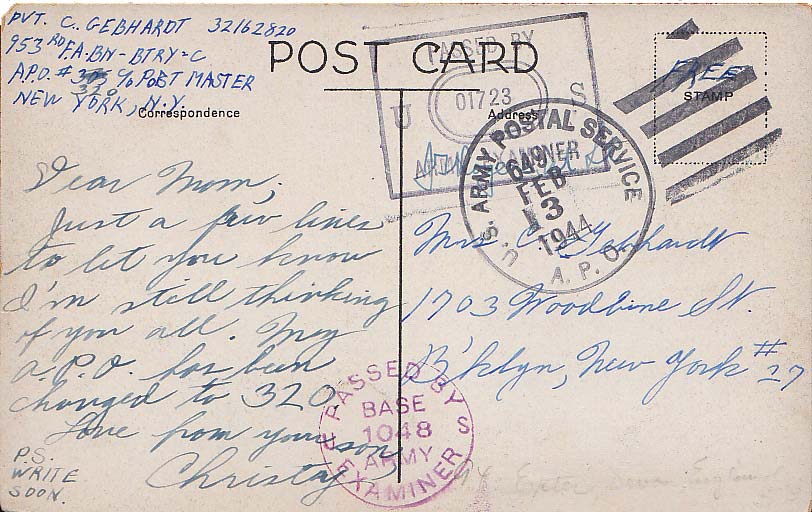 PVT. C. GEBHARDT 32162820
953 RD F.A.BN - BTRY=C
A.P.O. # 305 % POST MASTER
320
NEW YORK, N.Y.
POST CARD
Correspondence
Address
FREE
STAMP
PASSED BY
U 01723 S
ARMY EXAMINER
U.S. ARMY POSTAL SERVICE
649
FEB
13
1944
A.P.O.
Dear Mom,
Just a few lines
to let you know
I'm still thinking
of you all. My
A.P.O. has been
changed to 320.
Love from your son
Christy
P.S.
WRITE
SOON.
Mrs C. Gebhardt
1703 Woodbine St.
B'klyn, New York #27
PASSED BY
BASE
U 1048 S
ARMY
EXAMINER
Exeter, Devon